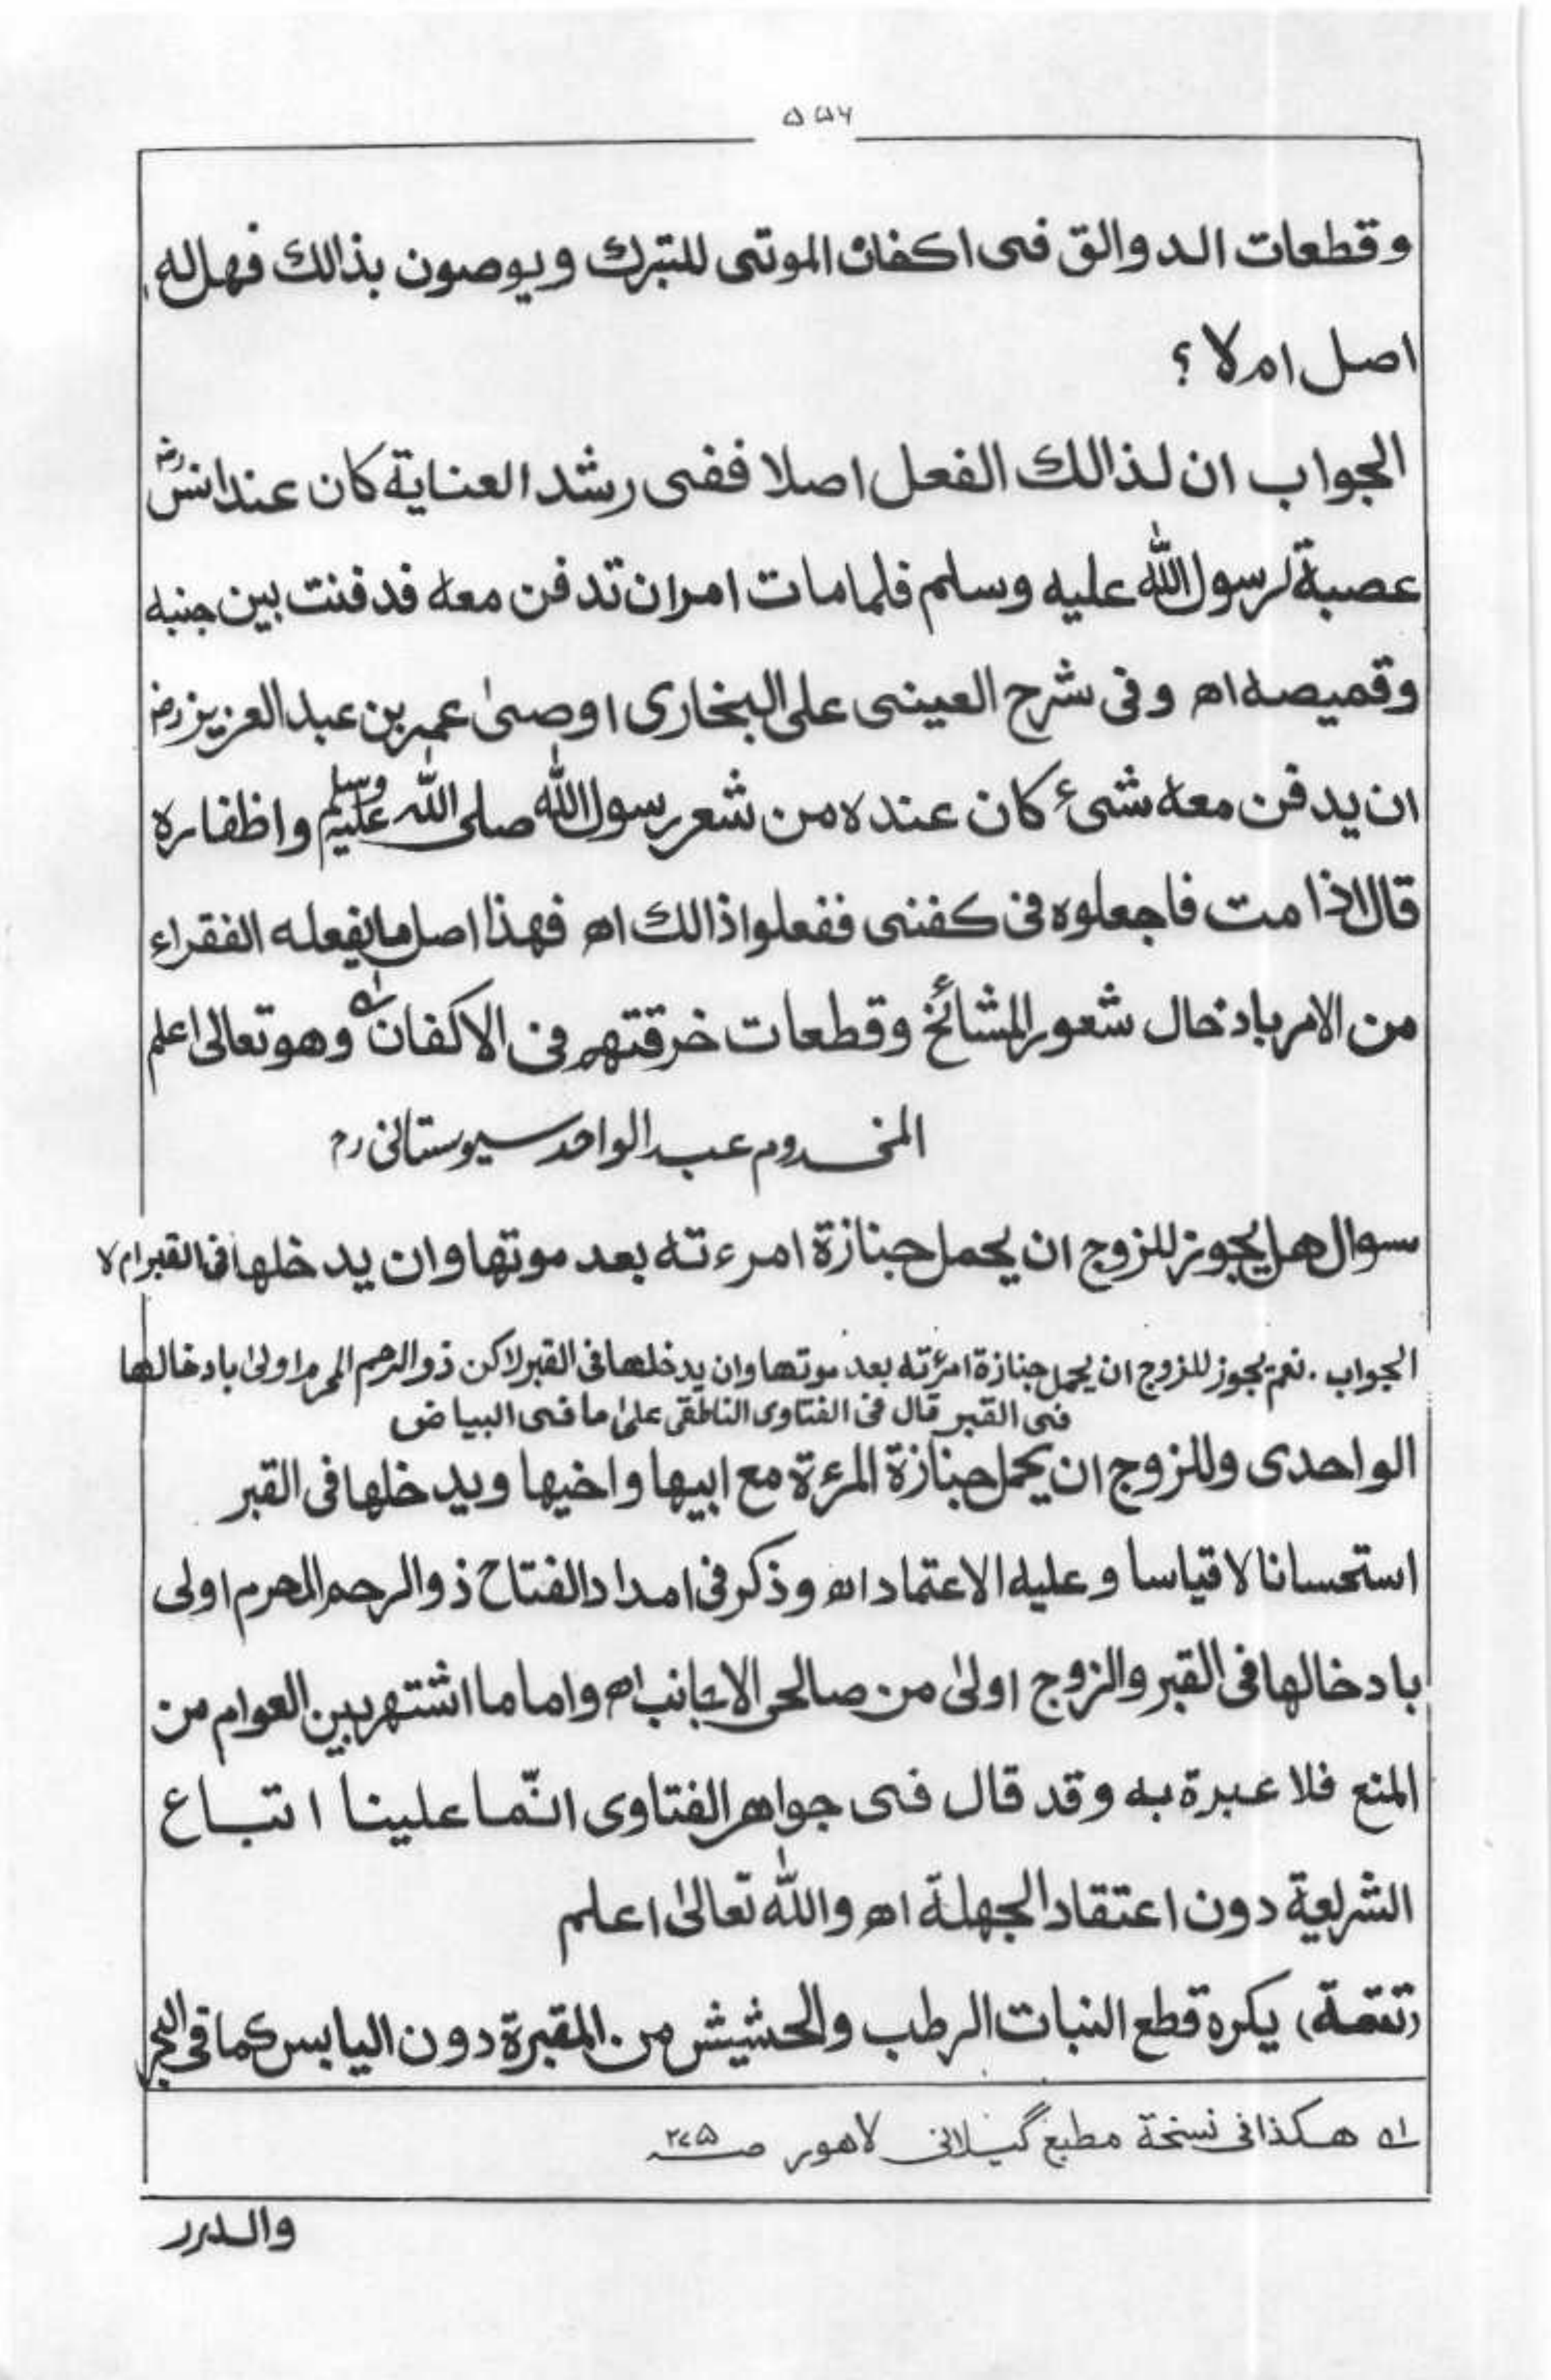 ۵۵۶
وقطعات الدوالق فی اکفان الموتی للتبرك ویوصون بذالك فهل له
اصل ام لا ؟
الجواب ان لذالك الفعل اصلا ففی رشد العنایة کان عند انسؓ
عصبة لرسول الله علیه وسلم فلما مات امر ان تدفن معه فدفنت بین جنبه
وقمیصه اھ وفی شرح العینی علی البخاری اوصیٰ عمر بن عبد العزیز رضہ
ان یدفن معه شیئ کان عنده من شعر رسول الله صلی الله علیه وسلم واظفاره
قال اذا مت فاجعلوه فی کفنی ففعلوا ذالك اھ فهذا اصل ما یفعله الفقراء
من الامر بادخال شعور المشائخ وقطعات خرقتهم فی الاکفان لہ وهو تعالی اعلم
المخدوم عبد الواحد سیوستانی رح
سوال هل یجوز للزوج ان یحمل جنازة امرءته بعد موتها وان یدخلها فی القبر ام لا
الجواب . نعم یجوز للزوج ان یحمل جنازة امرئته بعد موتها وان یدخلها فی القبر لاکن ذو الرحم المحرم اولیٰ بادخالها
فی القبر قال فی الفتاوی الناطقی علیٰ ما فی البیاض
الواحدی وللزوج ان یحمل جنازة المرءة مع ابیها واخیها ویدخلها فی القبر
استحسانا لا قیاسا وعلیه الاعتماد اھ وذکر فی امداد الفتاح ذو الرحم المحرم اولی
بادخالها فی القبر والزوج اولیٰ من صالحی الاجانب اھ واما ما اشتهر بین العوام من
المنع فلا عبرة به وقد قال فی جواهر الفتاوی انّما علینا اتباع
الشریعة دون اعتقاد الجهلة اھ والله تعالیٰ اعلم
(تتمة) یکره قطع النبات الرطب والحشیش من المقبرة دون الیابس کما فی البحر
لہ هکذا فی نسخة مطبع گیلانی لاهور صـ ۲۷۵
والدرر